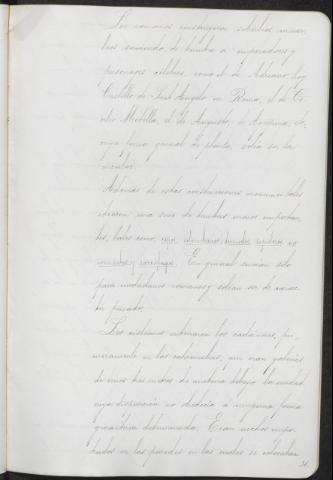 Los romanos construyeron soberbios mauso-
leos sirviendo de tumba a emperadores y
personajes célebres, como el de Adriano, hoy
Castillo de Sant Angelo en Roma, el de Ce-
cilia Metella, el de Augusto, de Agripina
cuya forma general de planta, solía ser la
circular.
Además de estas construcciones monumentales
idearon una serie de tumbas menos importan-
tes, tales como,
y sarcófagos. En general servían estos
para ciudadanos romanos y solían ser de carac-
ter privado.
Los cristianos enterraron los cadáveres, pri-
meramente en las catacumbas, que eran galerías
de unos tres metros de anchura debajo la ciudad
cuya disposición no obedecía a ninguna forma
geométrica determinada. Eran nichos
en las paredes en los cuales se colocaban